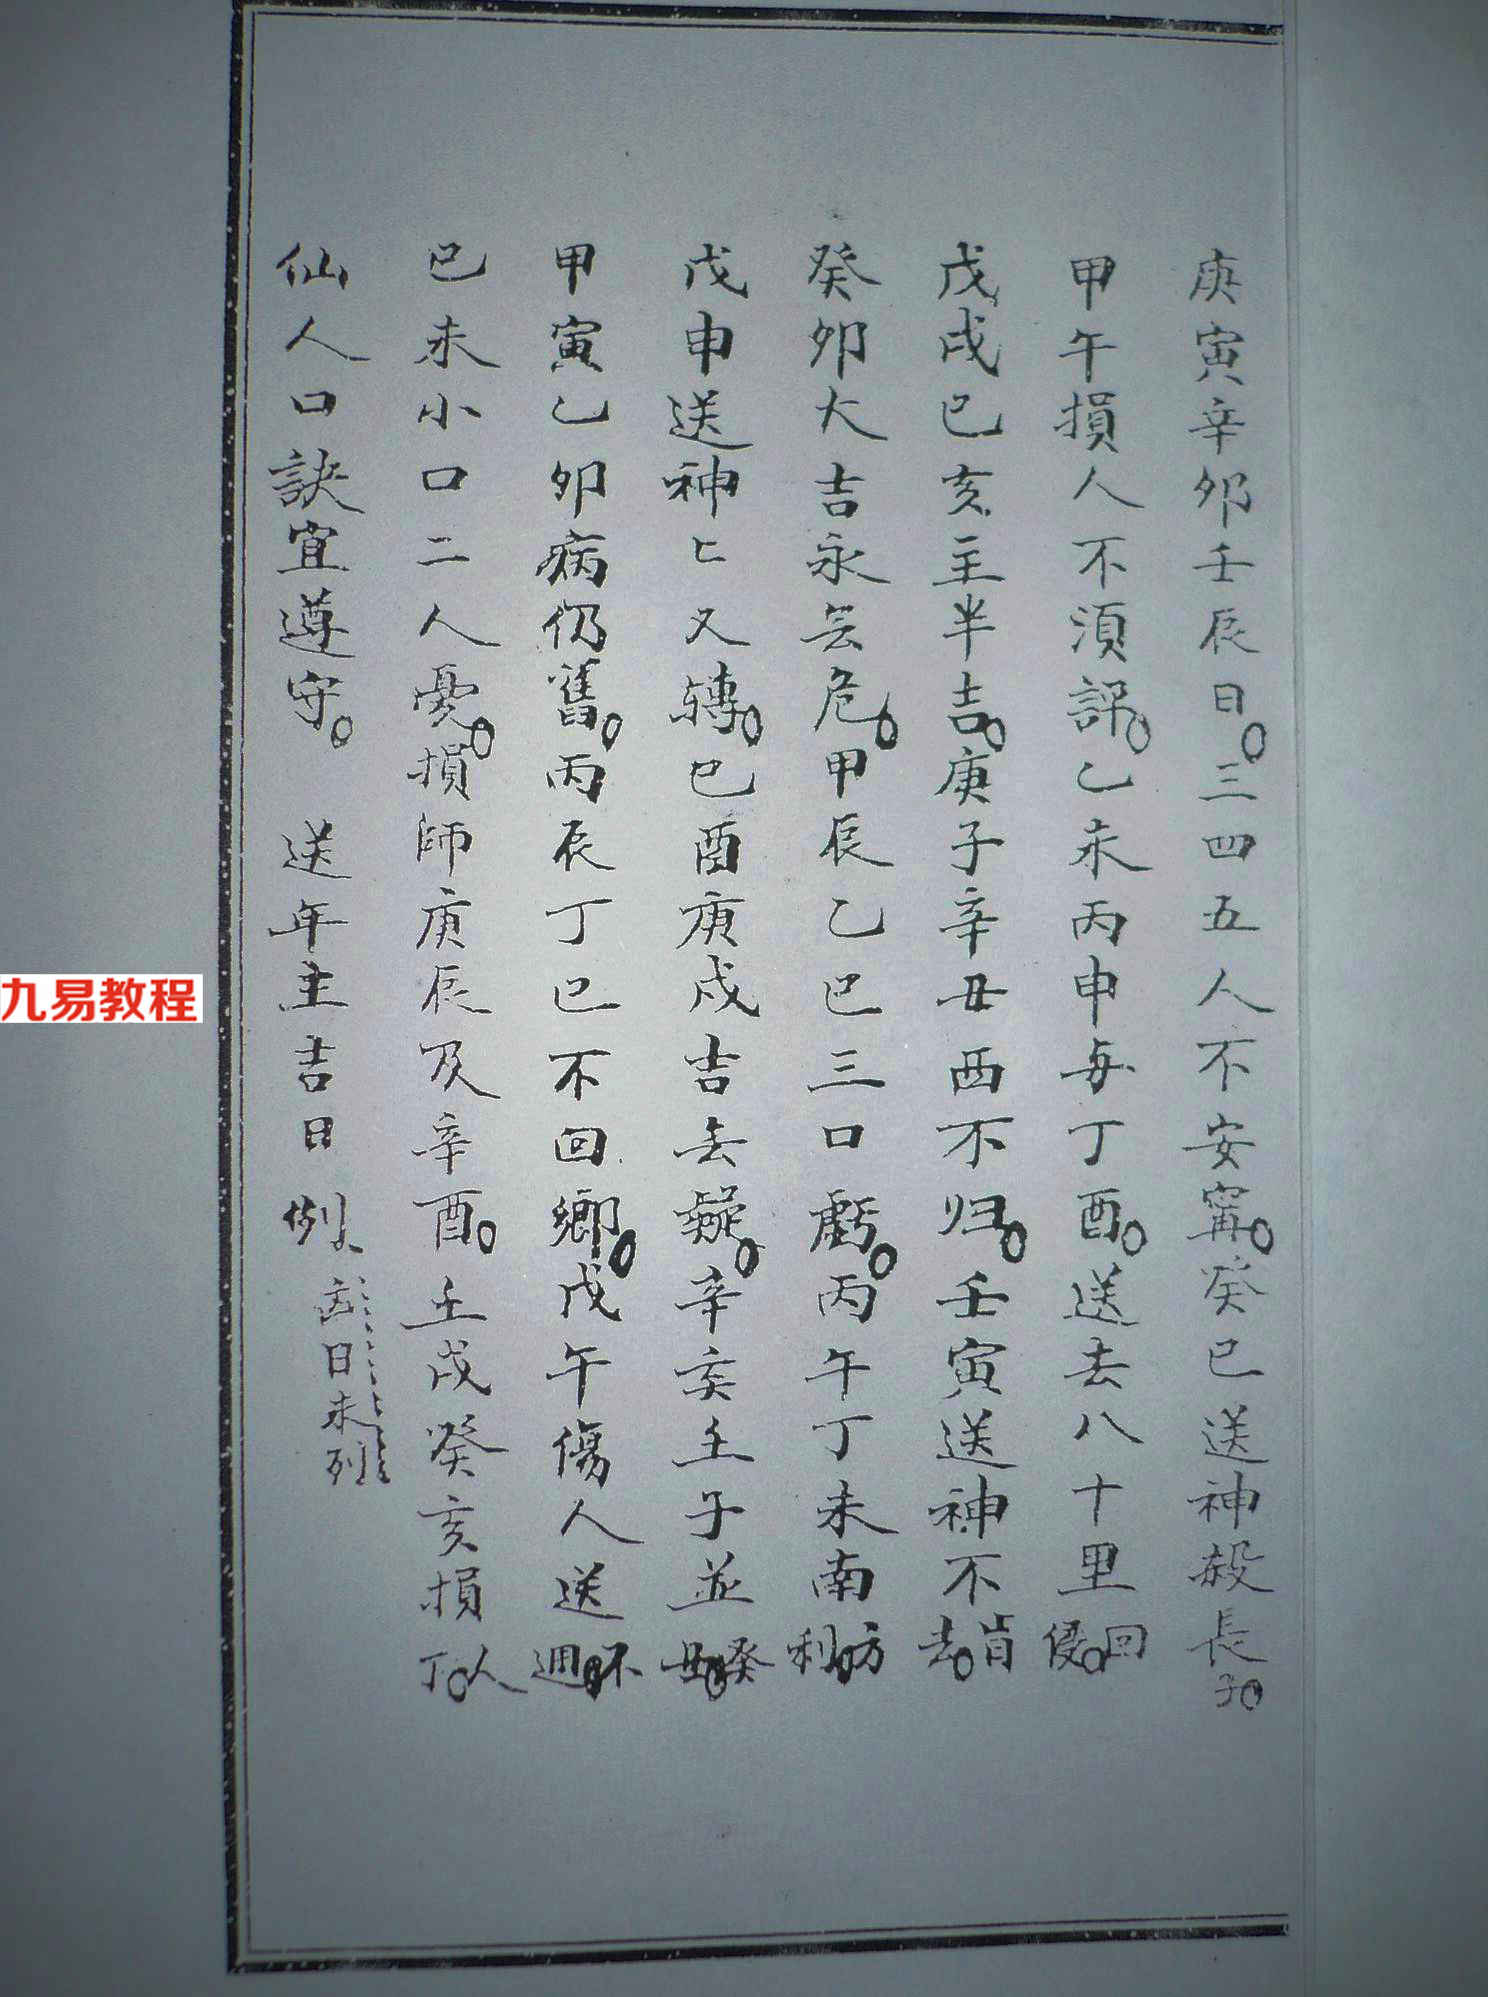 庚寅辛卯壬辰日。三四五人不安甯。癸巳送神殺長子。
甲午損人不須認。乙未丙申与丁酉。送去八十里回侵。
戊戌己亥主半吉。庚子辛丑西不归。壬寅送神不肯去。
癸卯大吉永無危。甲辰乙巳三口虧。丙午丁未南方利。
戊申送神匕又轉。己酉庚戌吉無疑。辛亥壬子並癸丑。
甲寅乙卯病仍舊。丙辰丁巳不回鄉。戊午傷人送不週。
己未小口二人憂。損師庚辰及辛酉。壬戌癸亥損人丁。
仙人口訣宜遵守。 送年主吉日例、
凶日未列
九易教程